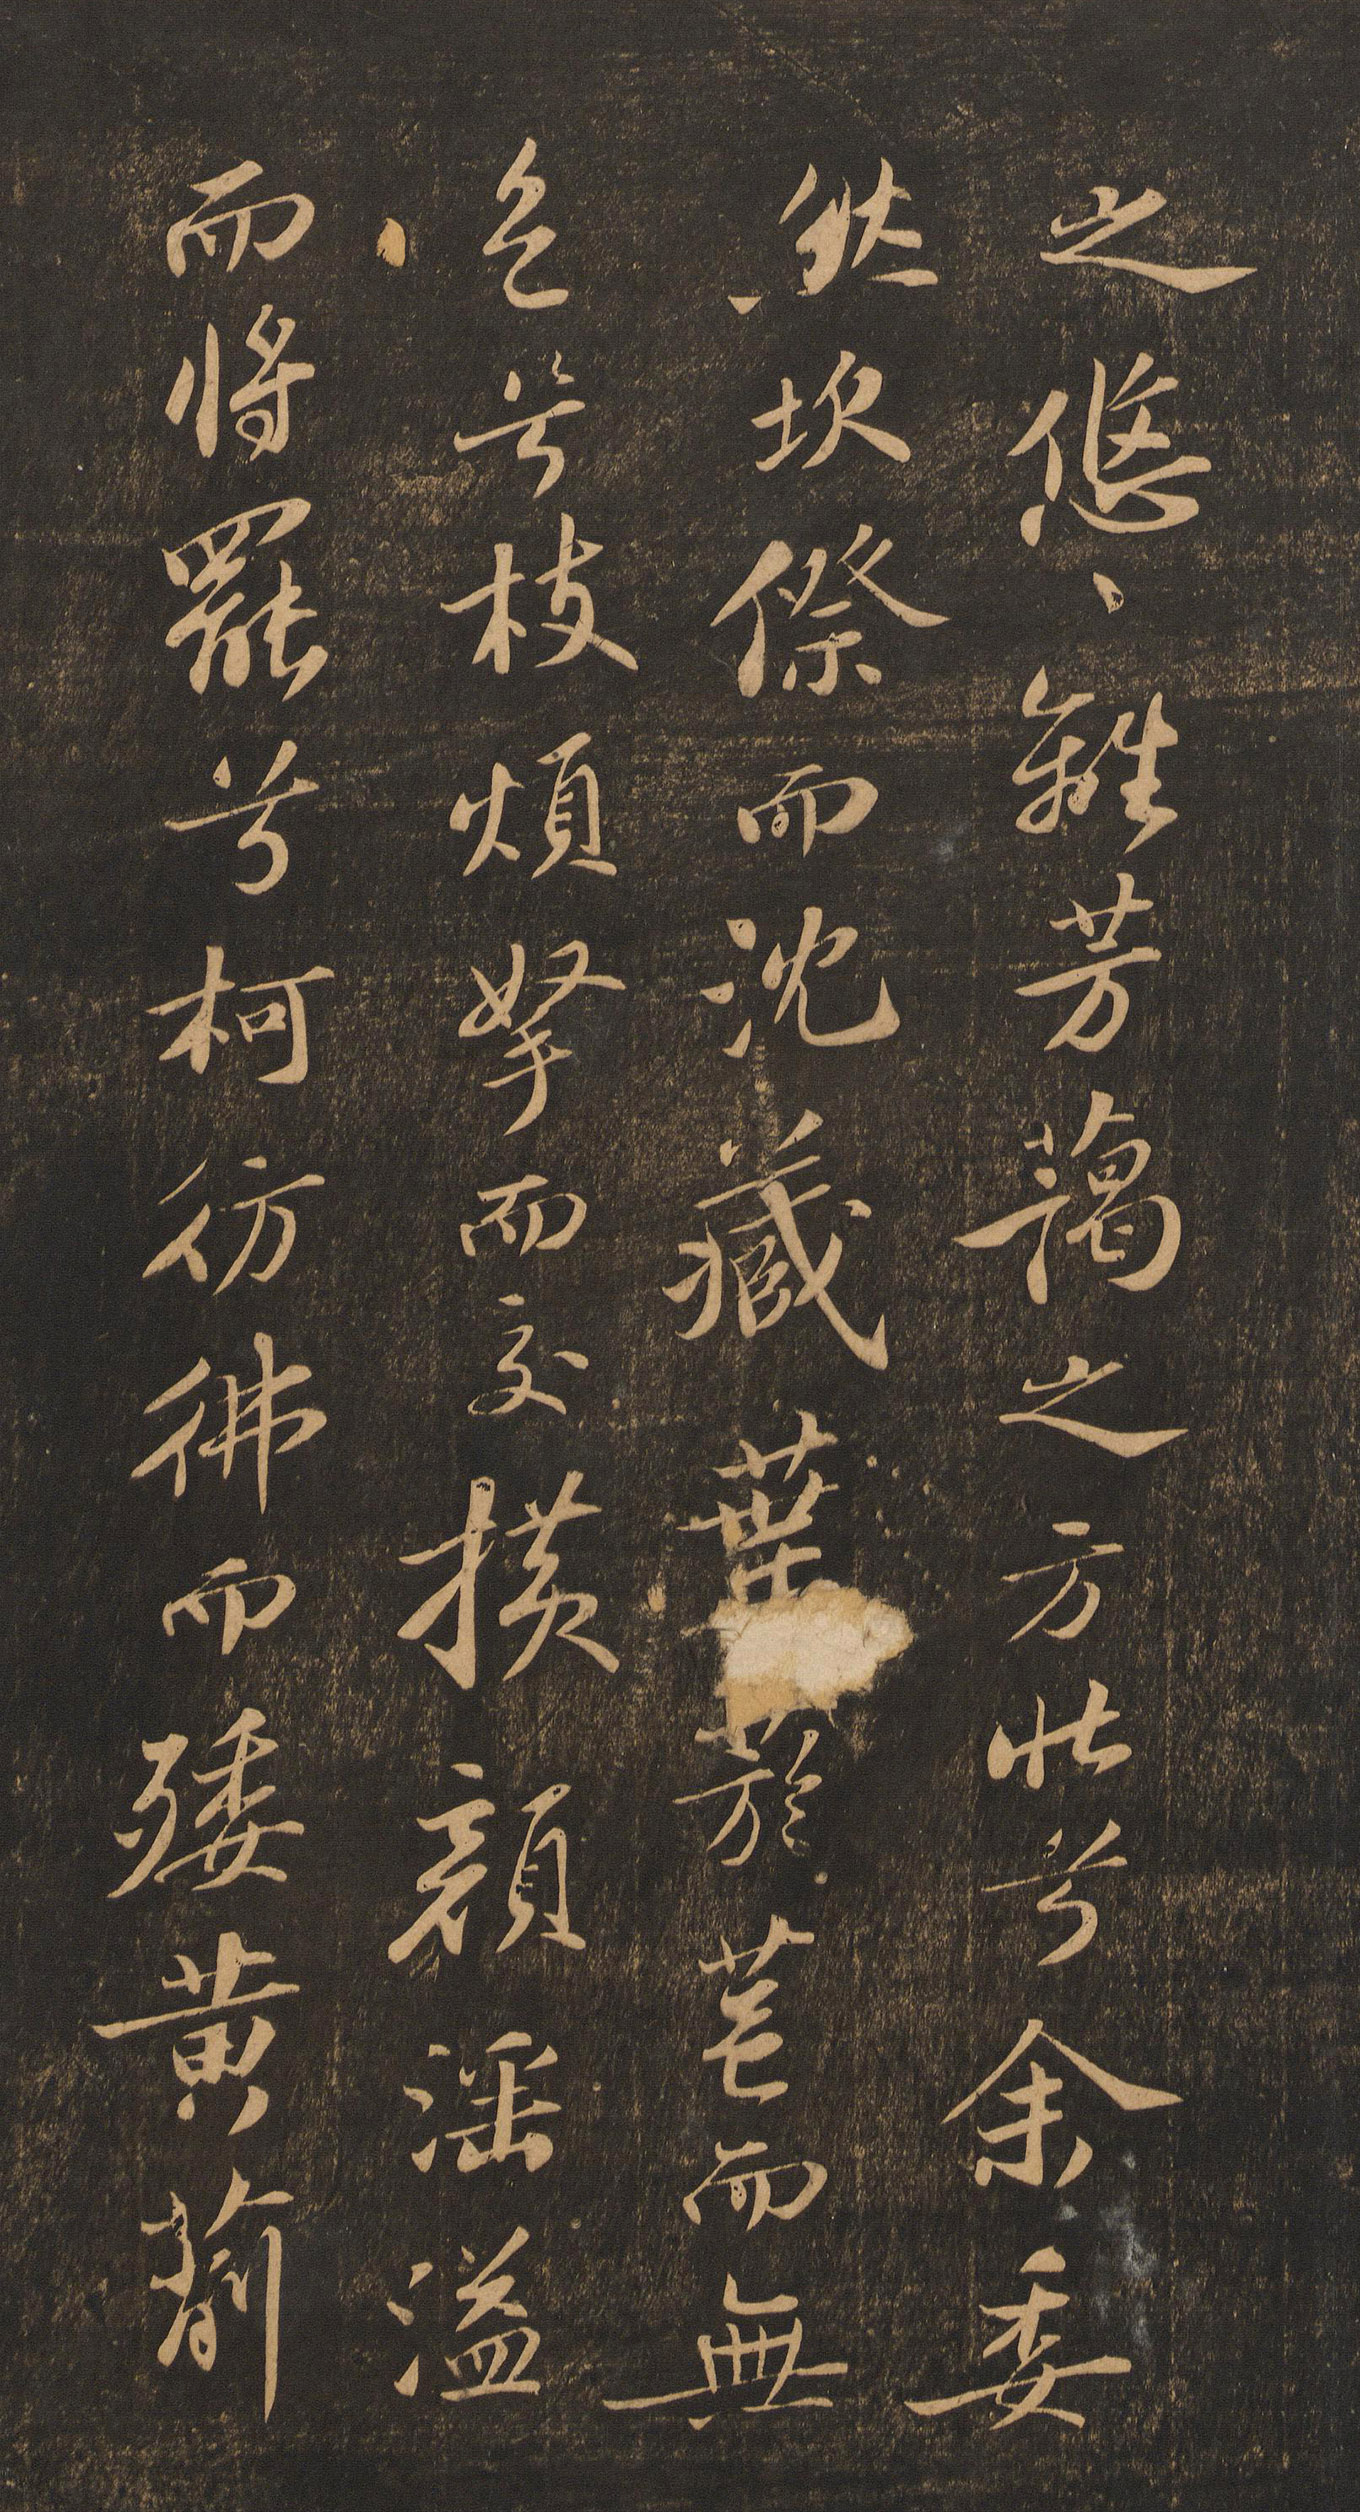 之悠〻離芳藹之方壯兮余委
然坎傺而沈藏葉菸邑而無
色兮枝煩挐而交横顔淫溢
而將罷兮柯彷彿而㱣黄萷